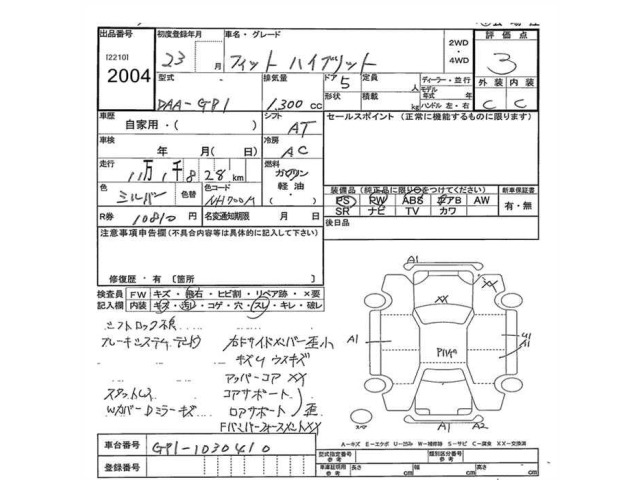 出品番号 初度登録年月 車名・グレード 2WD・4WD 評価点
[2210] 2004 23 月 フィット ハイブリット 3
型式 排気量 ドア 定員 ディーラー・並行 外装 内装
DAA-GP1 1,300 CC 5 形状 積載 人 kg モデル年式 年 ハンドル 左・右 C C
車歴 シフト セールスポイント (正常に機能するものに限ります)
自家用・( ) AT
車検 冷房
年 月(日) AC
走行 燃料
11万1千828 km ガソリン 軽油・
色 色替 色コード 装備品(純正品に限り○をつけてください) 新車保証書
シルバー NH700M PS PW ABS エアB AW 有・無
R券 10810 円 名変通知期限 月 日 SR ナビ TV カワ
注意事項申告欄(不具合内容等は具体的に記入して下さい) 後日品
修復歴・有 [箇所 ]
検査員記入欄 FW キズ・飛石・ヒビ割・リペア跡・×要
内装 キズ・汚れ・コゲ・穴・スレ・キレ・破レ
シフトロック不良
右ドサイドメンバー歪小
キズ凹ウスキズ
アッパーコアXX
スタットレス コアサポート
WカバーDミラーキズ ロアサポート 歪
A1
XX
XX
A1
A1
A1
A2
A-キズ E-エクボ U-凹み W-補修跡 S-サビ C-腐食 XX-交換済
車台番号 GP1-1030410 型式指定番号 参考 類別区分番号 参考
登録番号 車庫証明用 参考 長さ cm 幅 cm 高さ cm